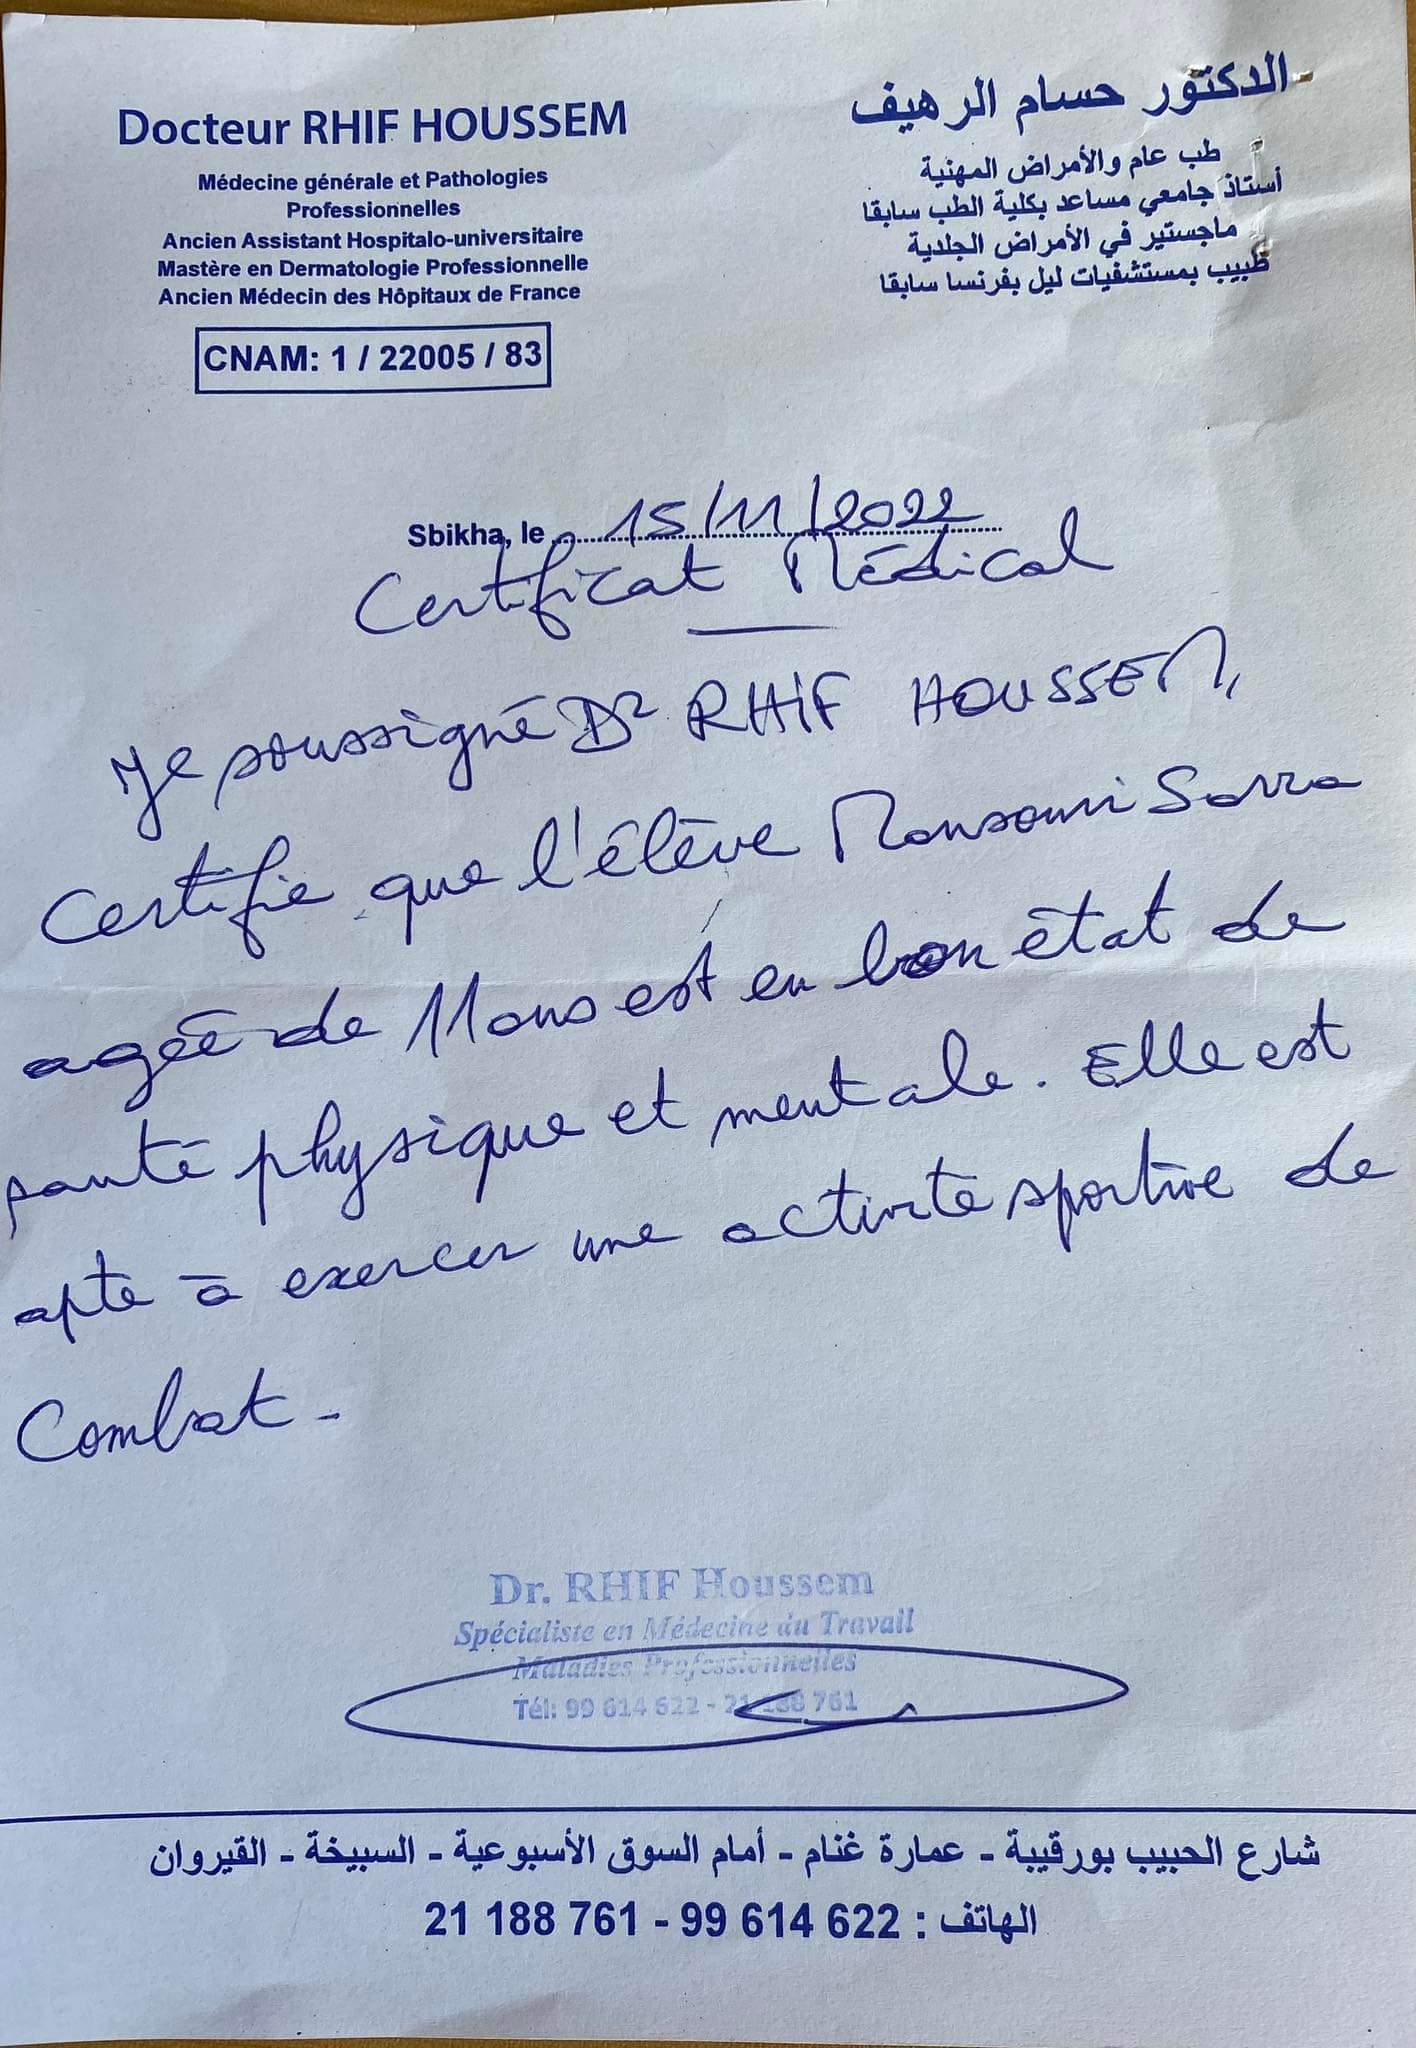 Docteur RHIF HOUSSEM
Médecine générale et Pathologies
Professionnelles
Ancien Assistant Hospitalo-universitaire
Mastère en Dermatologie Professionnelle
Ancien Médecin des Hôpitaux de France
CNAM: 1 / 22005 / 83
الدكتور حسام الرهيف
طب عام والأمراض المهنية
أستاذ جامعي مساعد بكلية الطب سابقا
ماجستير في الأمراض الجلدية
طبيب بمستشفيات ليل بفرنسا سابقا
Sbikha, le 15/11/2022
Certificat Médical
Je soussigné Dr RHIF HOUSSEM,
Certifie que l'élève Mansouri Sarra
agée de 11 ans est en bon état de
santé physique et mentale. Elle est
apte à exercer une activité sportive de
Combat -
Dr. RHIF Houssem
Spécialiste en Médecine du Travail
Maladies Professionnelles
Tél: 99 614 622 - 21 188 761
شارع الحبيب بورقيبة - عمارة غنام - أمام السوق الأسبوعية - السبيخة - القيروان
الهاتف : 99 614 622 - 21 188 761